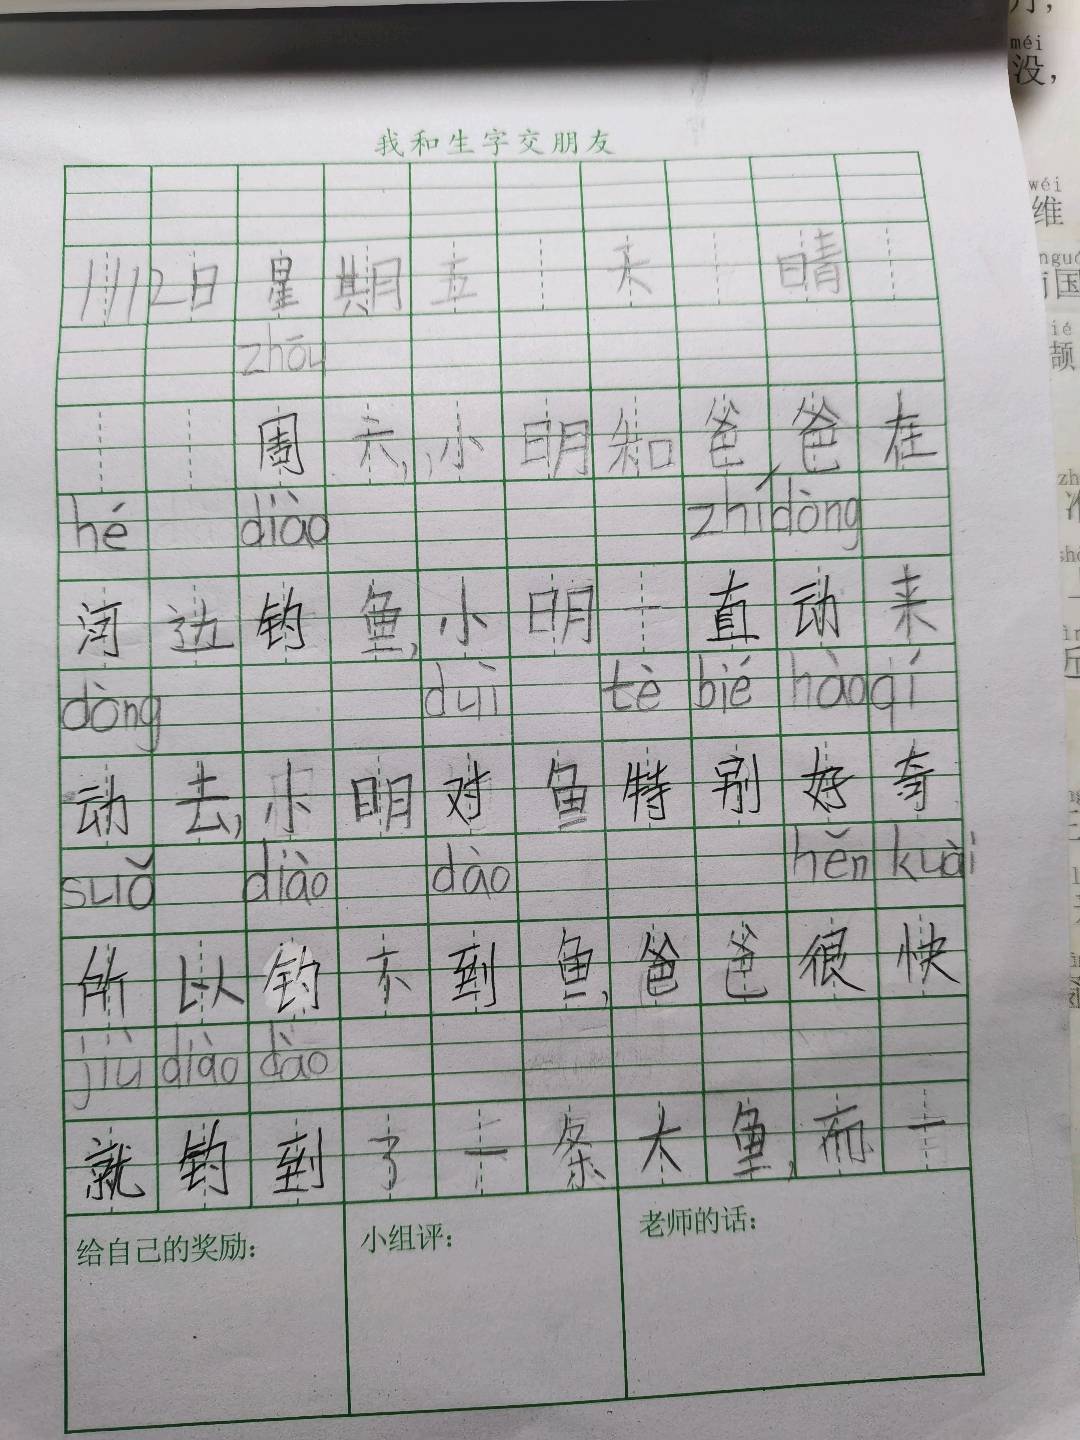 我和生字交朋友
11112日星期五 天 晴
zhōu
周六,小明知爸爸在
hé diào zhí dòng
河边钓鱼,小明一直动来
dòng duì tè bié hào qí
动去,小明对鱼特别好奇
suǒ diào dào hěn kuài
所以钓不到鱼,爸爸很快
jiù diào dào
就钓到了一条大鱼,而一
给自己的奖励:
小组评:
老师的话:
méi
没,
wéi
维
国
颉